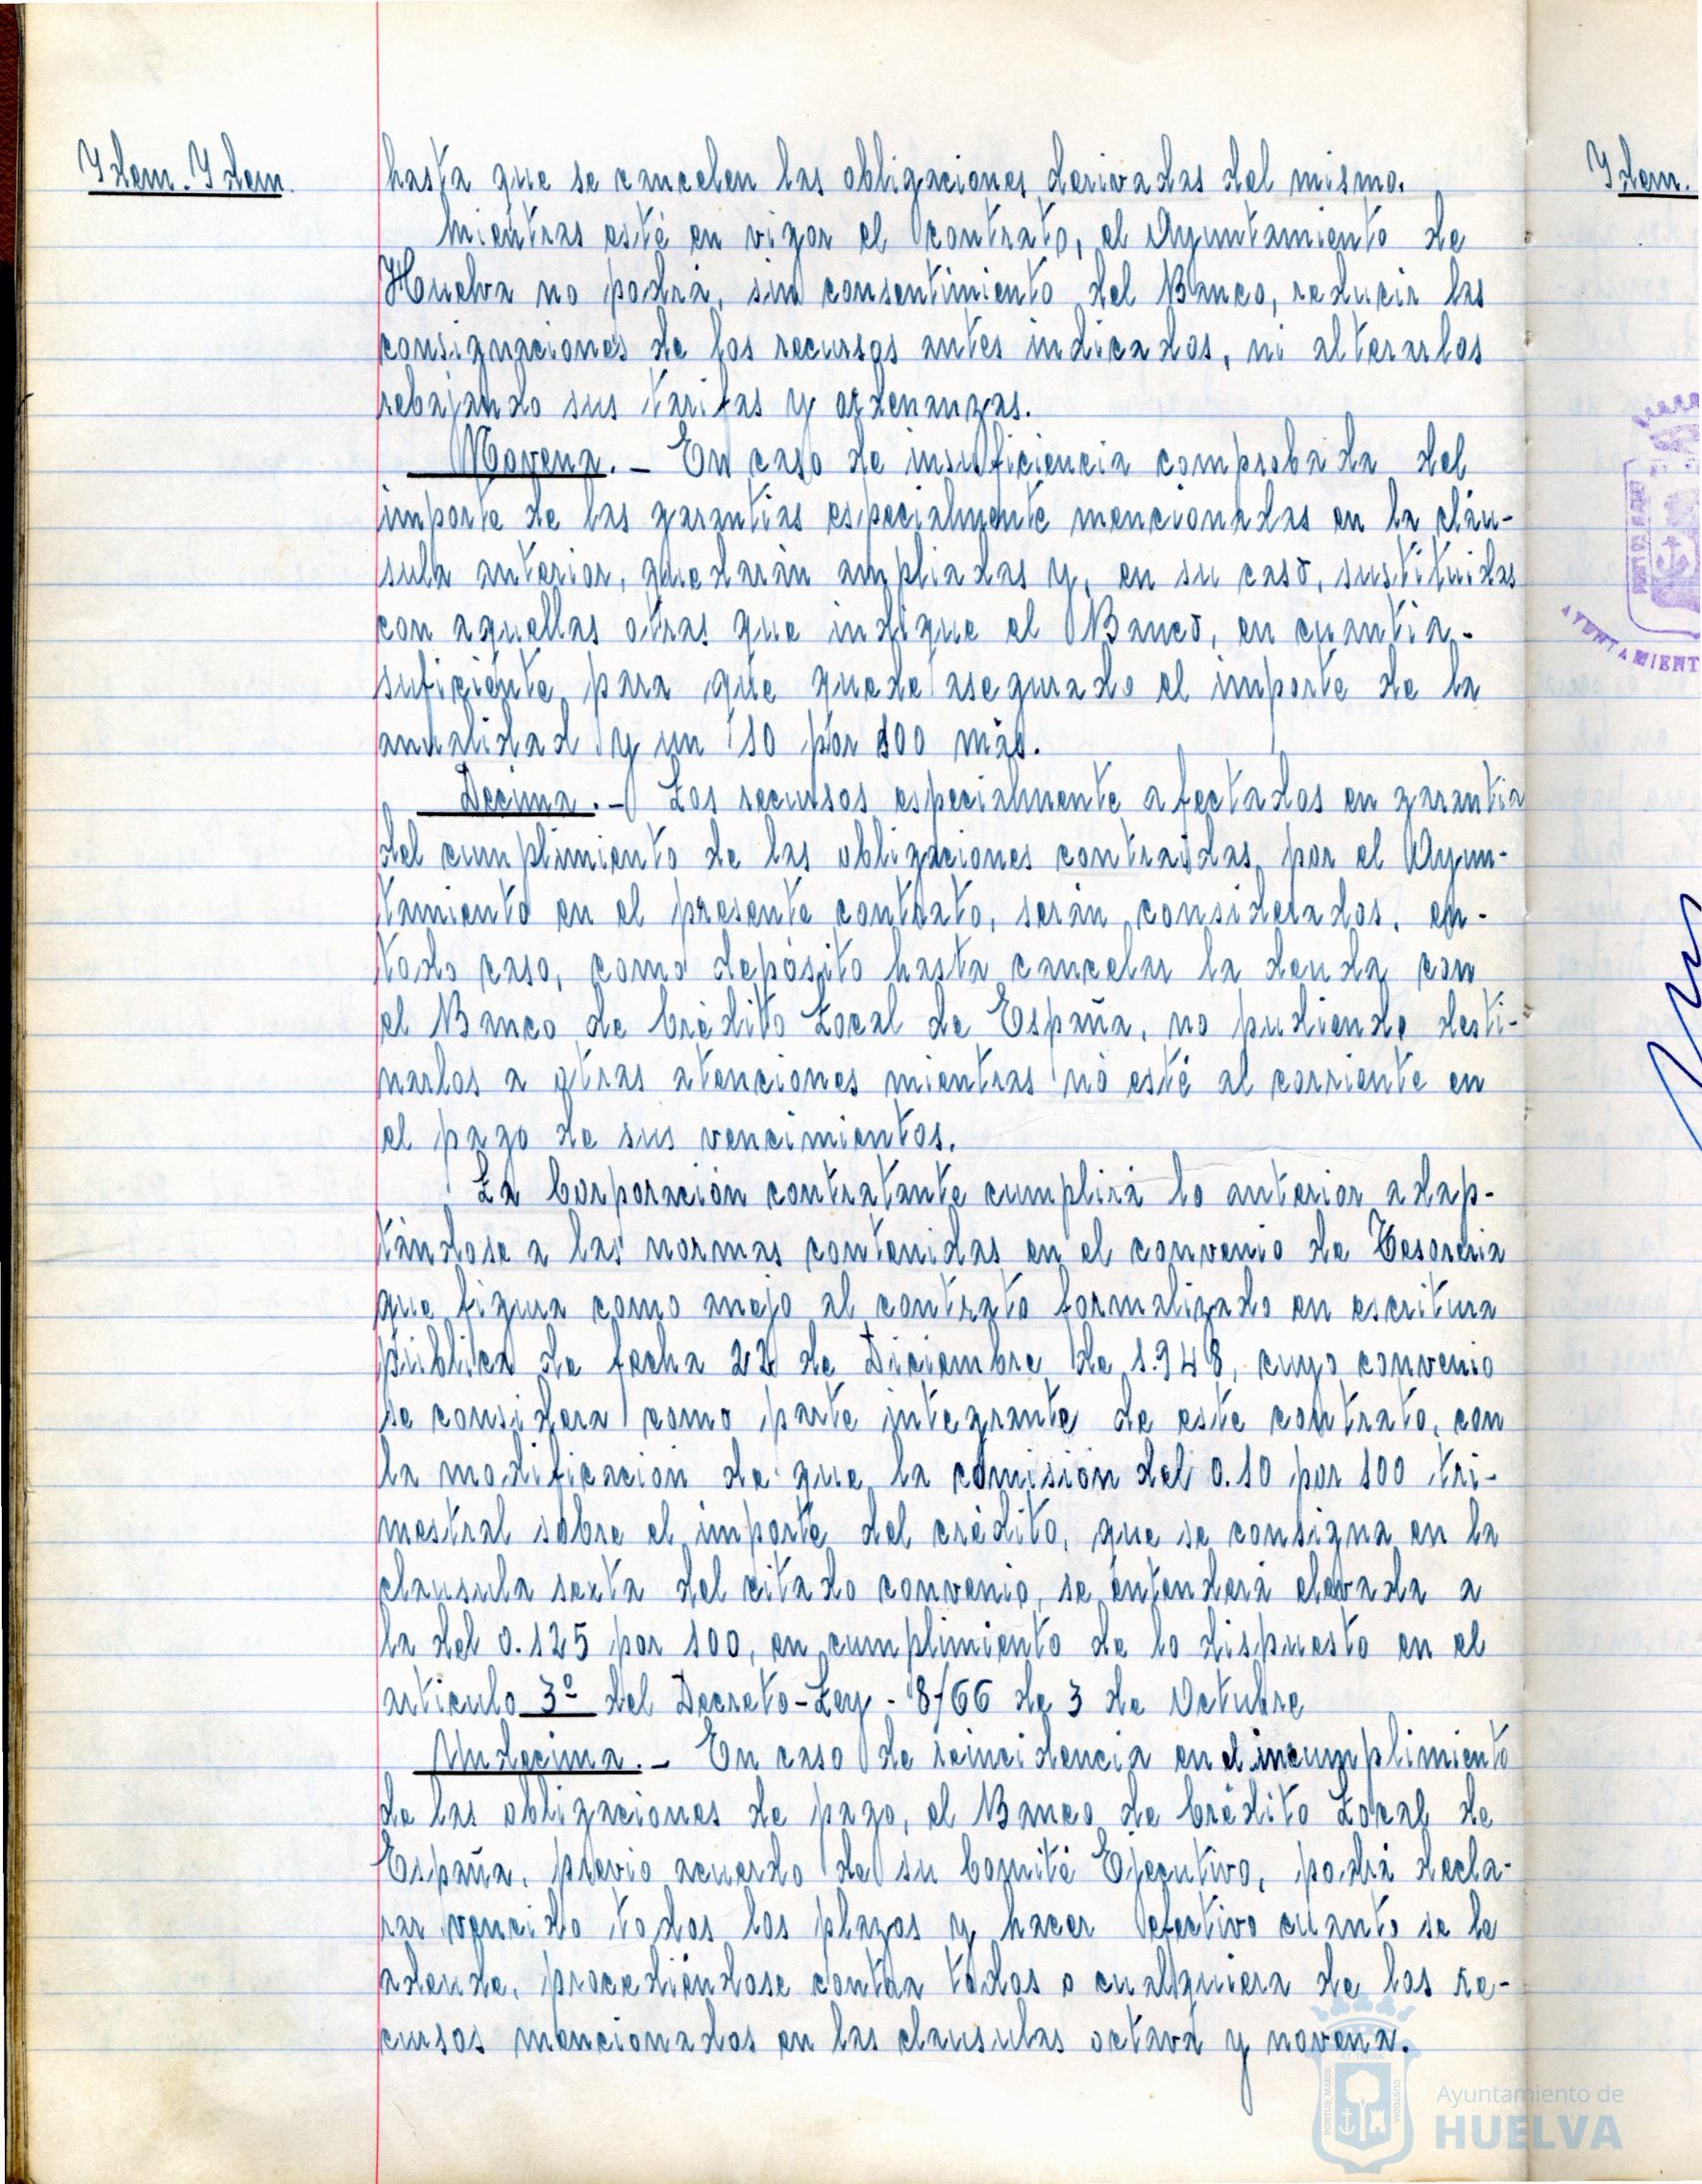 Idem. Idem.
hasta que se cancelen las obligaciones derivadas del mismo.
Mientras esté en vigor el contrato, el Ayuntamiento de
Huelva no podrá, sin consentimiento del Banco, reducir las
consignaciones de los recursos antes indicados, ni alterarlos
rebajando sus tarifas y ordenanzas.
Novena.- En caso de insuficiencia comprobada del
importe de las garantías especialmente mencionadas en la cláu-
sula anterior, quedarán ampliadas y, en su caso, sustituidas
con aquellas otras que indique el Banco, en cuantía-
suficiente para que quede asegurado el importe de la
anualidad y un 10 por 100 más.
Décima.- Los recursos especialmente afectados en garantía
del cumplimiento de las obligaciones contraidas por el Ayun-
tamiento en el presente contrato, serán considerados, en-
todo caso, como depósito hasta cancelar la deuda con
el Banco de Crédito Local de España, no pudiendo desti-
narlos a otras atenciones mientras no esté al corriente en
el pago de sus vencimientos.
La Corporación contratante cumplirá lo anterior adap-
tándose a las normas contenidas en el convenio de Tesorería
que figura como anejo al contrato formalizado en escritura
pública de fecha 22 de Diciembre de 1.948, cuyo convenio
se considera como parte integrante de este contrato, con
la modificación de que la comisión del 0.10 por 100 tri-
mestral sobre el importe del crédito, que se consigna en la
clausula sexta del citado convenio, se entenderá elevada a
la del 0.125 por 100, en cumplimiento de lo dispuesto en el
artículo 3º del Decreto-Ley - 8/66 de 3 de Octubre
Undecima.- En caso de reincidencia en el incumplimiento
de las obligaciones de pago, el Banco de Crédito Local de
España, previo acuerdo de su Comité Ejecutivo, podrá decla-
rar vencido todos los plazos y hacer efectivo cuanto se le
adeude, procediéndose contra todos o cualquiera de los re-
cursos mencionados en las clausulas octava y novena.
Idem.
AYUNTAMIENT
Ayuntamiento de
HUELVA